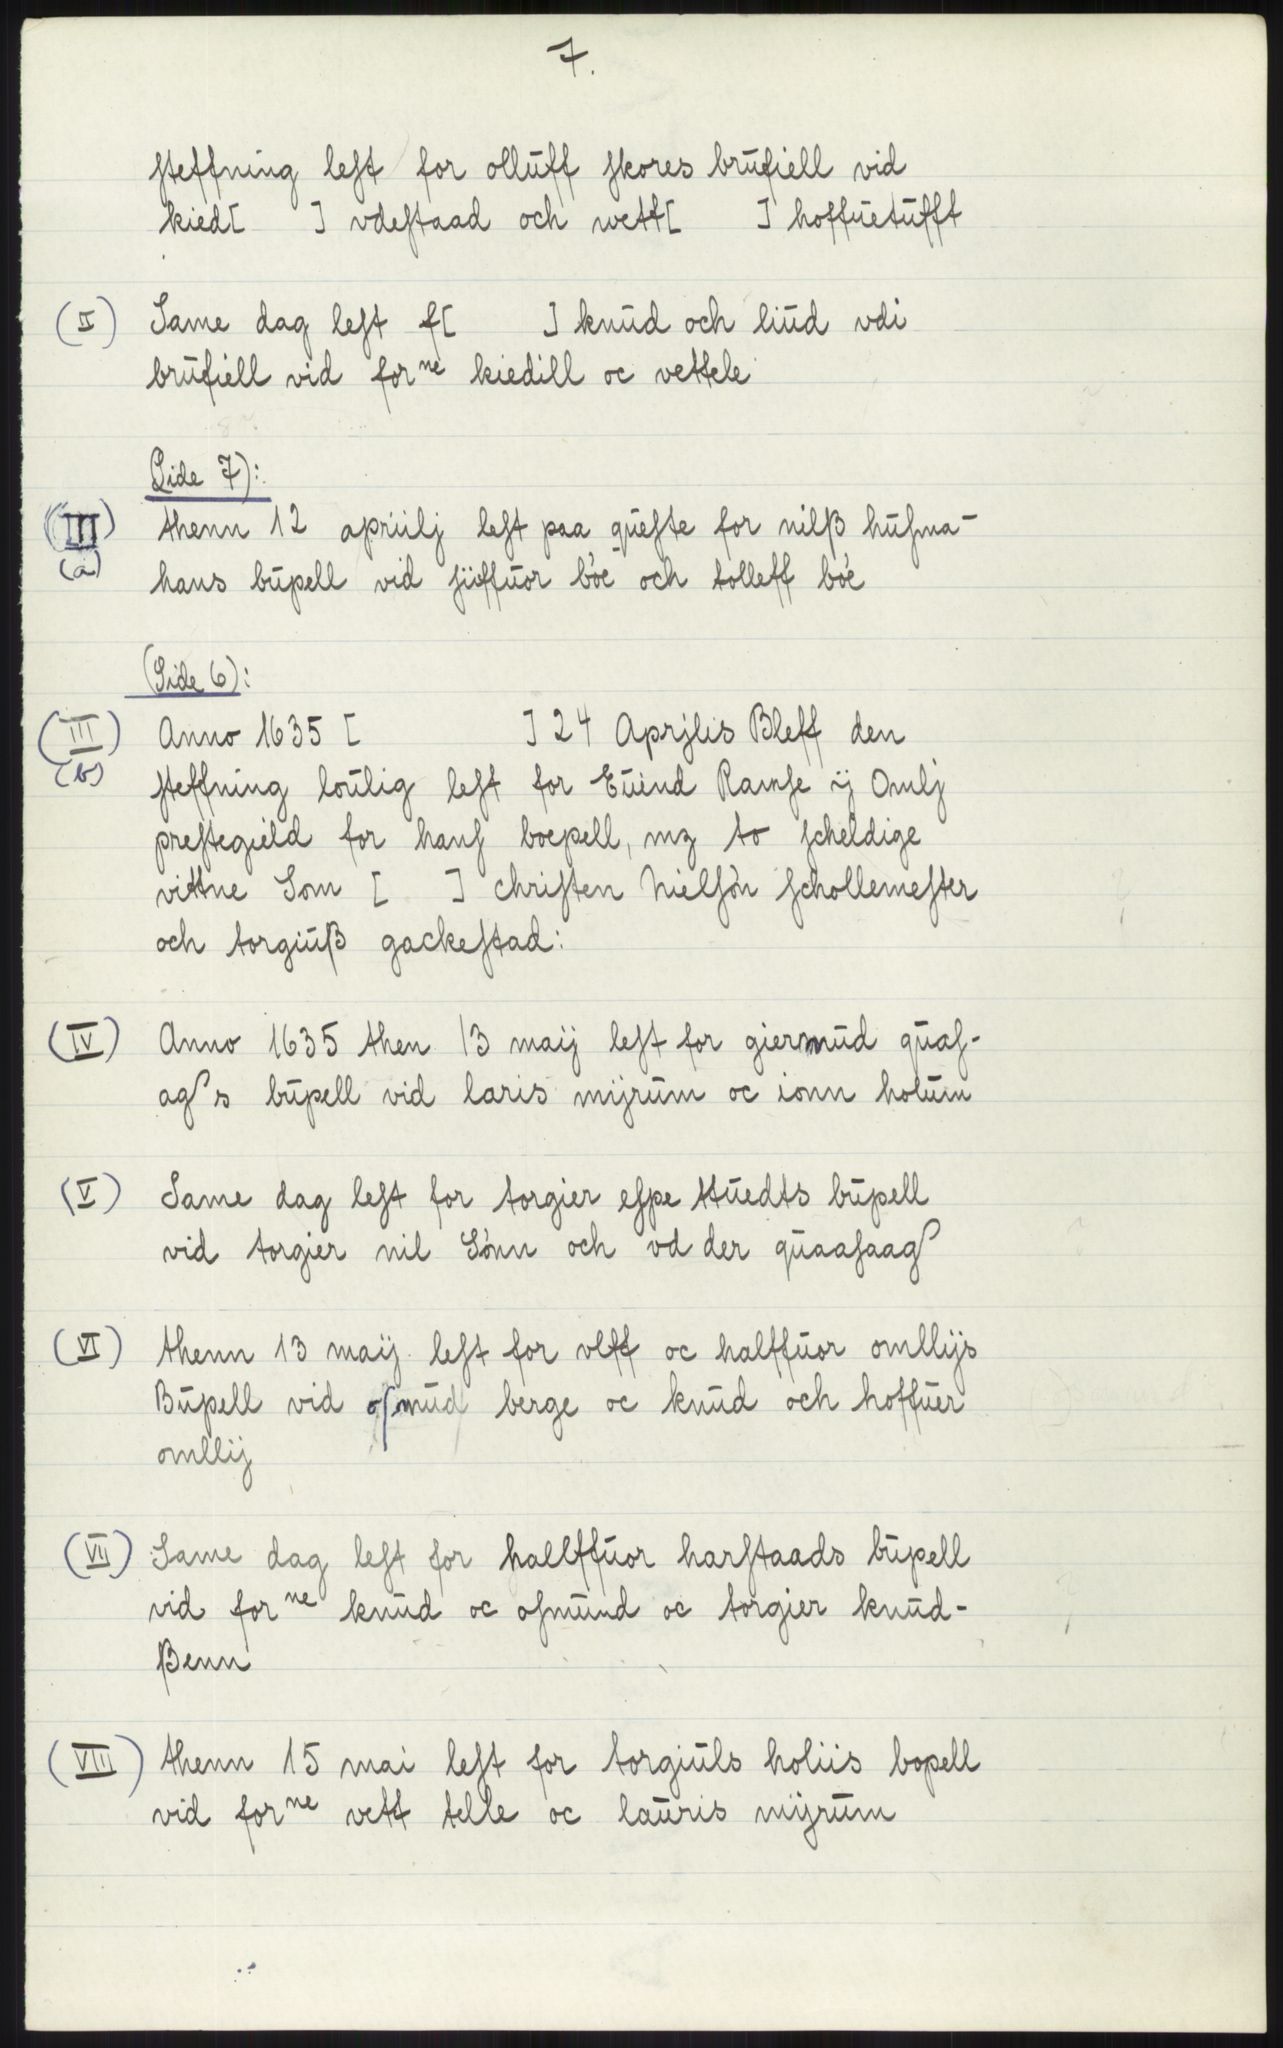 7.
steffning lest for olluff skores brufiell vid
kied[ ] vdestaad och wett[ ] hoffuetufft
(II) Same dag lest f[ ] knud och liud vdi
brufiell vid forne kiedill oc vettele
Side 7):
(III) thenn 12 apriilj lest paa queste for nilß husma-
(a) hans bupell vid siiffuor bóe och tolleff bóe
(Side 6):
(III) Anno 1635 [ ] 24 Aprjlis Bleff den
(b) steffning loulig lest for Euind Ramse ij Omlj
prestegield for hans boepell, mz to scheldige
vittne Som [ ] christen Nielsón schollemester
och torgiuß gackestad:
(IV) Anno 1635 then 13 maij lest for giermud quas-
ags bupell vid laris mijrum oc ionn holum
(V) Same dag lest for torgier espe ttuedts bupell
vid torgier nil Sónn och vd der quaasaag
(VI) thenn 13 maij lest for vlff oc halffuor omllijs
Bupell vid osmud berge oc knud och hoffuer
omllij
(VII) Same dag lest for hallffuor harstaads bupell
vid forne knud oc osmund oc torgier knud-
ßenn
(VIII) thenn 15 mai lest for torgiuls holiis bopell
vid forne vett telle oc lauris mijrum